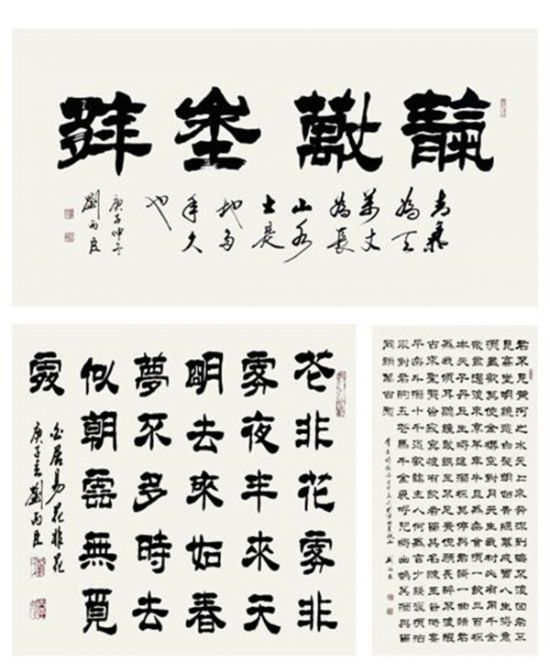 靝埊
青氣
為天
萬丈
為長
山水
土是
地多
年久
也
庚子仲冬
劉丙臣
花非花霧非
霧夜半來天
明去來如春
夢不多時去
似朝雲無覓
處
白居易花非花
庚子春劉丙臣
君不見黃河之水天上來奔流到海不復回君不
見高堂明鏡悲白髮朝如青絲暮成雪人生得意
須盡歡莫使金樽空對月天生我材必有用千金
散盡還復來烹羊宰牛且為樂會須一飲三百杯
岑夫子丹丘生將進酒杯莫停與君歌一曲請君
為我傾耳聽鐘鼓饌玉不足貴但願長醉不願醒
古來聖賢皆寂寞惟有飲者留其名陳王昔時宴
平樂斗酒十千恣歡謔主人何為言少錢徑須沽
取對君酌五花馬千金裘呼兒將出換美酒與爾
同銷萬古愁